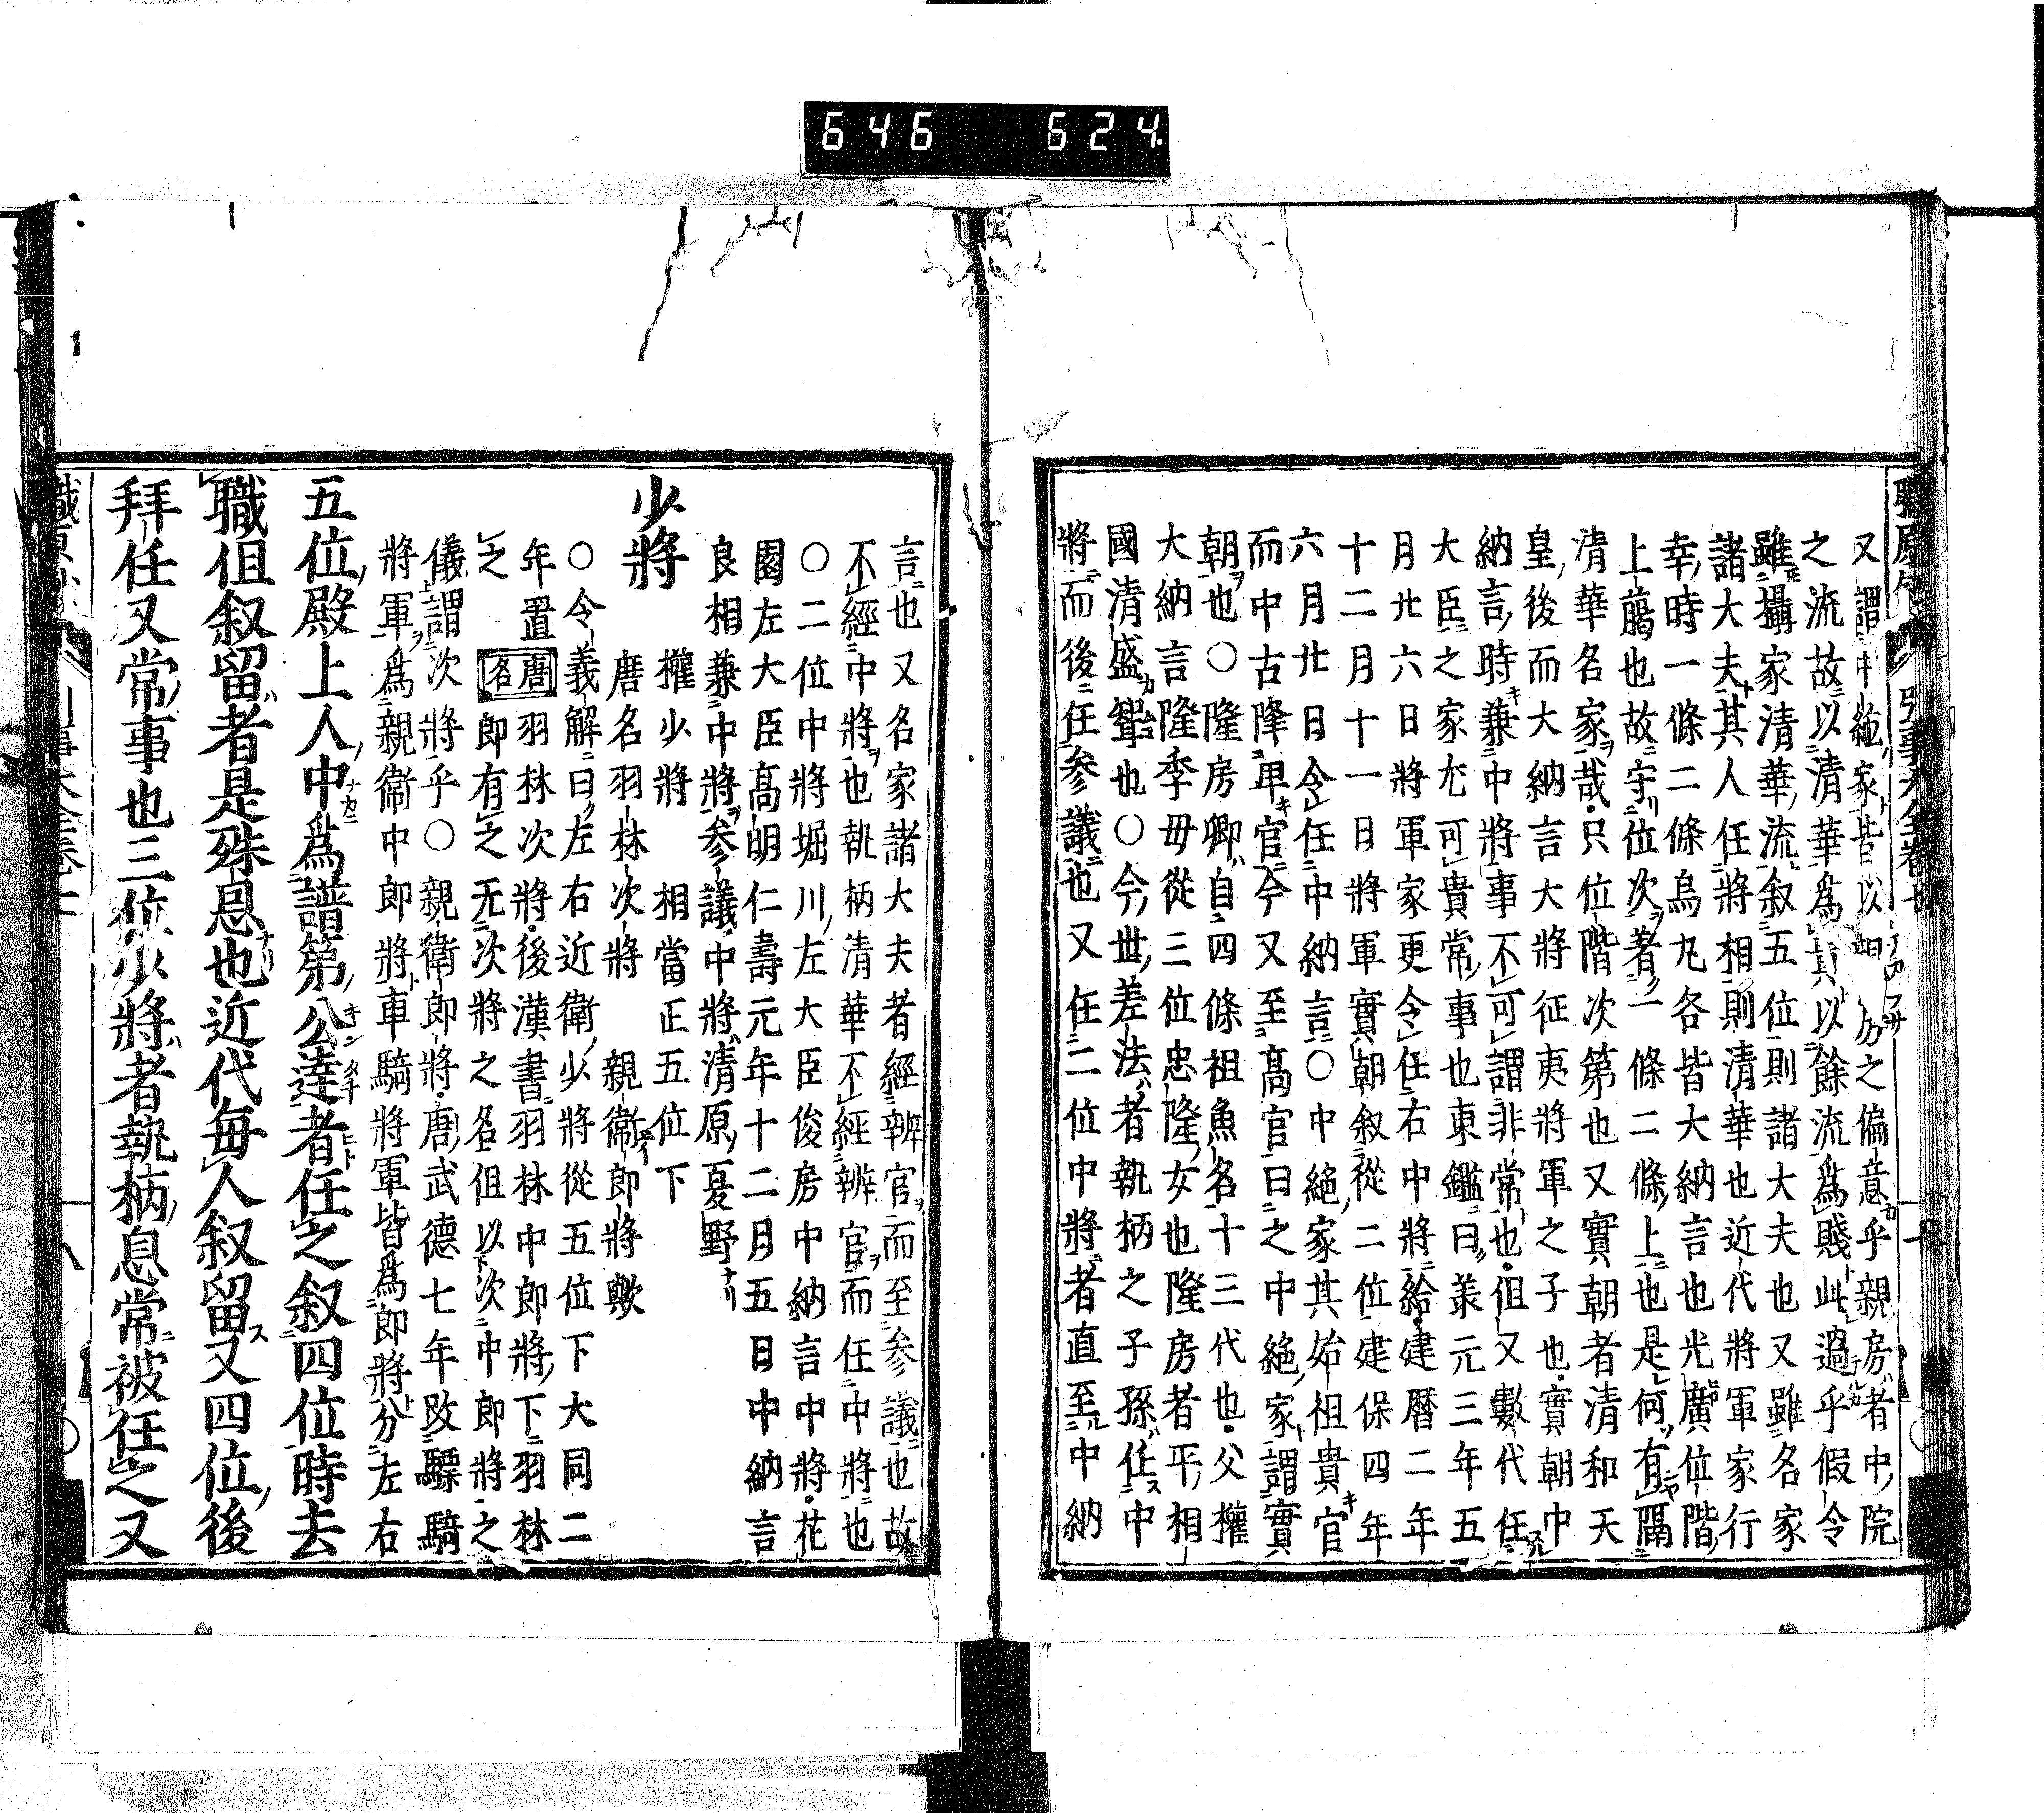 646 624
又謂中絶家皆以
之偏意乎親房者中院
之流故以清華為貴以餘流為賤此過乎假令
雖攝家清華流叙五位則諸大夫也又雖名家
諸大夫其人任將相則清華也近代將軍家行
幸時一條二條烏丸各皆大納言也光廣位階
上﨟也故守位次者一條二條上也是何有隔
清華名家哉只位階次第也又實朝者清和天
皇後而大納言大將征夷將軍之子也實朝中
納言時兼中將事不可謂非常也但又數代任
大臣之家尤可貴常事也東鑑曰羕元三年五
月廿六日將軍家更令任右中將給建暦二年
十二月十一日將軍實朝叙從二位建保四年
六月廿日令任中納言〇中絶家其始祖貴官
而中古降卑官今又至髙官曰之中絶家謂實
朝也〇隆房卿自四條祖魚名十三代也父權
大納言隆季毋從三位忠隆女也隆房者平相
國清盛聟也〇今世差法者執柄之子孫任中
將而後任参議也又任二位中將者直至中納
言也又名家諸大夫者經辨官而至参議也故
不經中將也執柄清華不經辨官而任中將也
〇二位中將堀川左大臣俊房中納言中將花
園左大臣髙明仁壽元年十二月五日中納言
良相兼中將参議中將清原夏野
少將
權少將 相當正五位下
唐名羽林次將 親衛郎將歟
〇令義解曰左右近衛少將從五位下大同二
年置 唐名 羽林次將後漢書羽林中郎將下羽林
郎有之无次將之名但以次中郎將之
之
儀謂次將乎〇親衛郎將唐武德七年改驃騎
將軍為親衞中郎將車騎將軍皆為郎將分左右
五位殿上人中為譜第公達者任之叙四位時去
職但叙留者是殊恩也近代毎人叙留又四位後
拜任又常事也三位少將者執柄息常被任之又